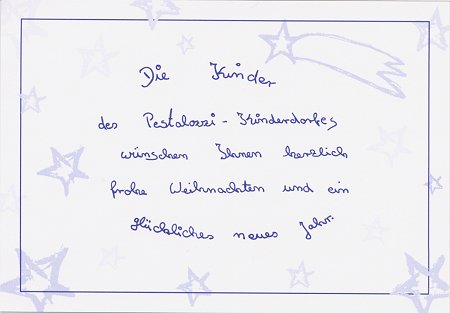 Die Kinder
des Pestalozzi-Kinderdorfes
wünschen Ihnen herzlich
frohe Weihnachten und ein
glückliches neues Jahr.